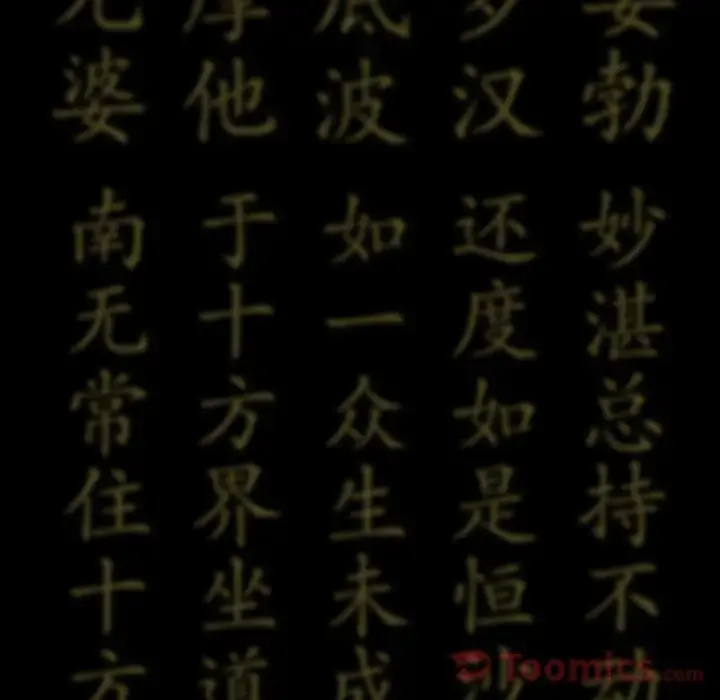 勃
汉
底波
他
婆
妙湛总持不动
还度如是恒沙
如一众生未成
于十方界坐道
南无常住十方
Toomics.com